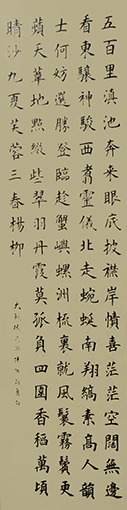 五百里滇池奔来眼底披襟岸幘喜茫茫空闊無邊
看東驤神駿西翥靈儀北走蜿蜒南翔縞素高人韻
士何妨選勝登臨趁蟹嶼螺洲梳裹就風鬟霧鬢更
蘋天葦地點綴些翠羽丹霞莫孤負四圍香稻萬頃
晴沙九夏芙蓉三春楊柳